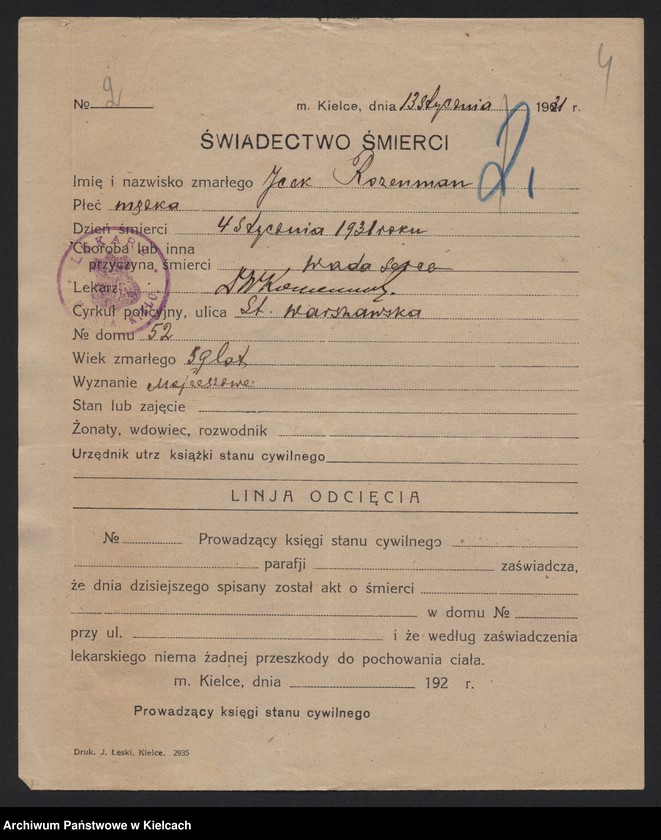 4
№ 2 m. Kielce, dnia 13 stycznia 1931 r.
ŚWIADECTWO ŚMIERCI
2,
Imię i nazwisko zmarłego Jcek Rozenman
Płeć męska
Dzień śmierci 4 Stycznia 1931 roku
Choroba lub inna
przyczyna śmierci wada serca
Lekarz
LEKARZ
Cyrkuł policyjny, ulica St. Warszawska
№ domu 52
Wiek zmarłego 59 lat
Wyznanie Mojżeszowe
Stan lub zajęcie
Żonaty, wdowiec, rozwodnik
Urzędnik utrz książki stanu cywilnego
LINJA ODCIĘCIA
№ Prowadzący księgi stanu cywilnego
parafji zaświadcza,
że dnia dzisiejszego spisany został akt o śmierci
w domu №
przy ul. i że według zaświadczenia
lekarskiego niema żadnej przeszkody do pochowania ciała.
m. Kielce, dnia 192 r.
Prowadzący księgi stanu cywilnego
Druk. J. Łęski, Kielce. 2935
Archiwum Państwowe w Kielcach